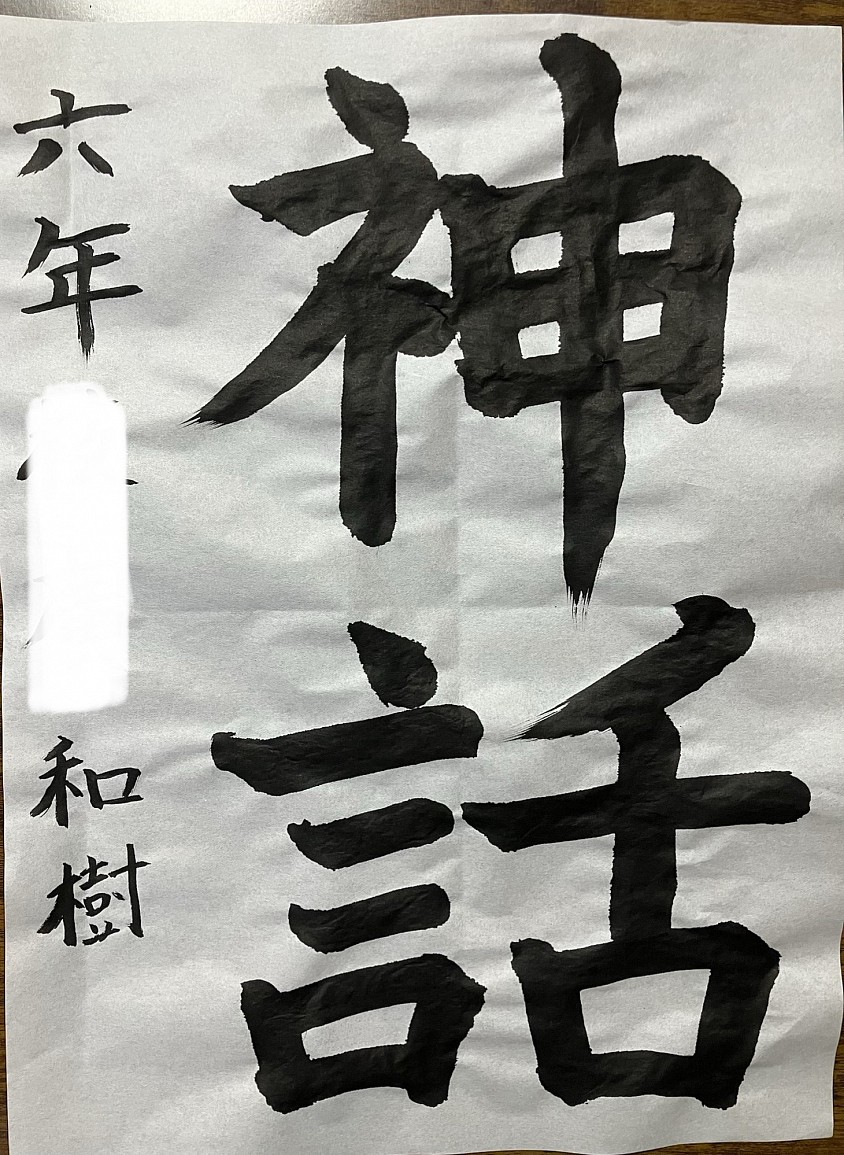 神話
六年
和樹